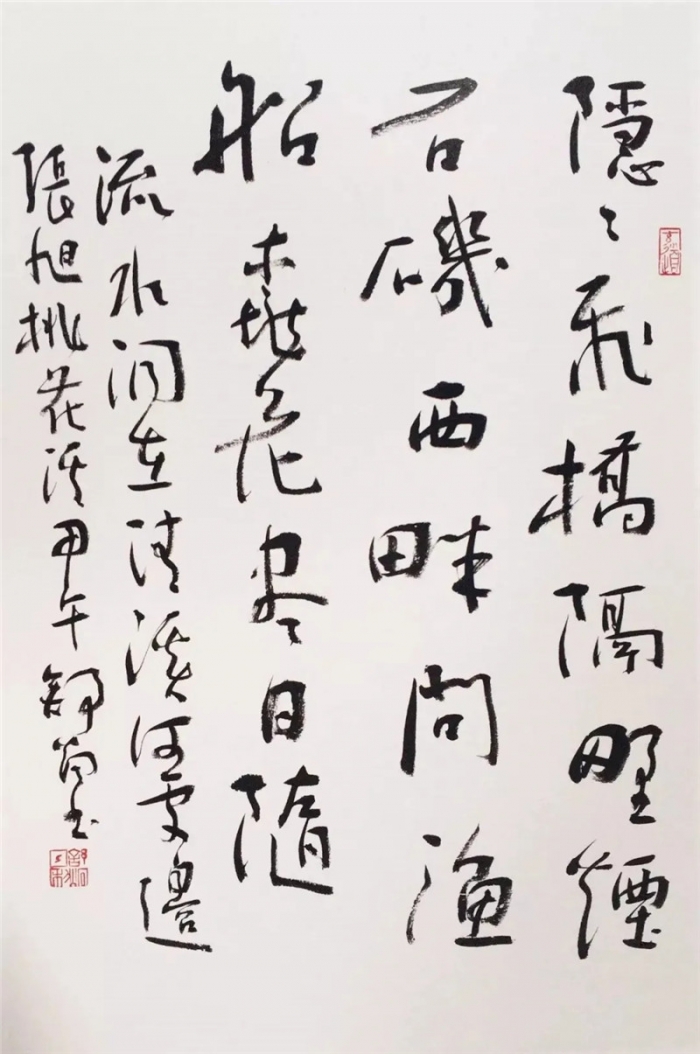 隱〻飛橋隔野煙
石磯西畔問漁
船桃花尽日隨
流水洞在清溪何處邊
張旭桃花溪甲午舒書